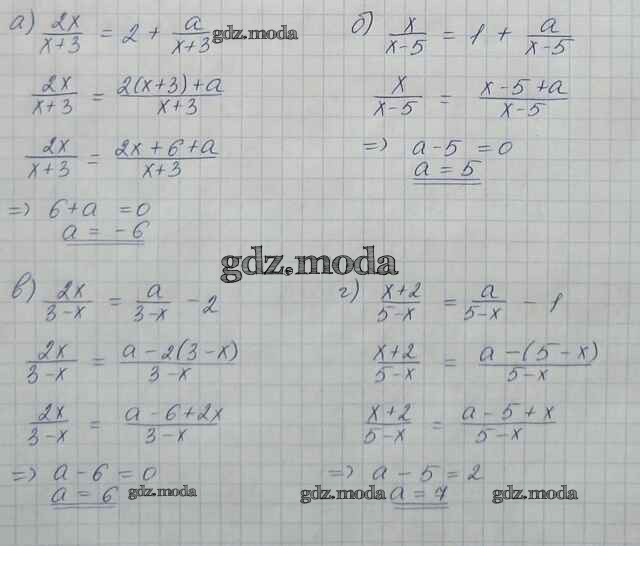 а) 2x/(x+3) = 2 + a/(x+3) gdz.moda
2x/(x+3) = (2(x+3)+a)/(x+3)
2x/(x+3) = (2x+6+a)/(x+3)
=> 6+a = 0
a = -6
б) x/(x-5) = 1 + a/(x-5)
x/(x-5) = (x-5+a)/(x-5)
=> a-5 = 0
a = 5
gdz.moda
в) 2x/(3-x) = a/(3-x) - 2
2x/(3-x) = (a-2(3-x))/(3-x)
2x/(3-x) = (a-6+2x)/(3-x)
=> a-6 = 0
a = 6 gdz.moda
г) (x+2)/(5-x) = a/(5-x) - 1
(x+2)/(5-x) = (a-(5-x))/(5-x)
(x+2)/(5-x) = (a-5+x)/(5-x)
=> a-5 = 2
gdz.moda a = 7 gdz.moda